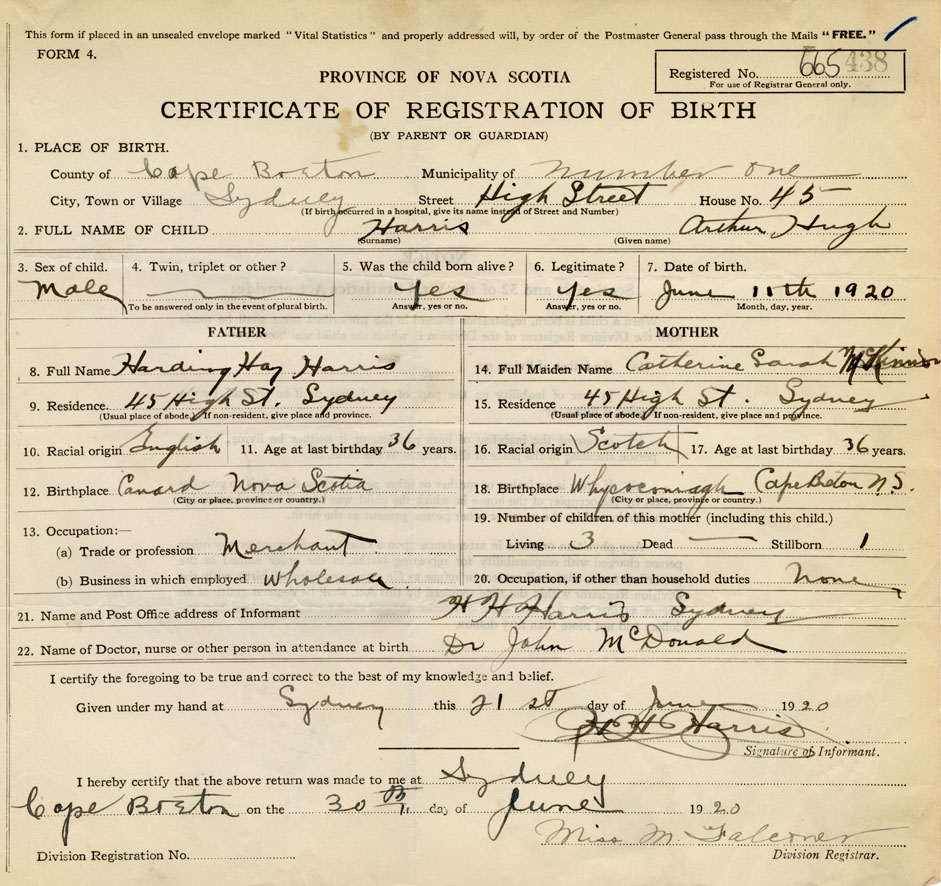 This form if placed in an unsealed envelope marked "Vital Statistics" and properly addressed will, by order of the Postmaster General pass through the Mails "FREE."
FORM 4.
Registered No. 665 438
For use of Registrar General only.
PROVINCE OF NOVA SCOTIA
CERTIFICATE OF REGISTRATION OF BIRTH
(BY PARENT OR GUARDIAN)
1. PLACE OF BIRTH.
County of Cape Breton Municipality of Number One
City, Town or Village Sydney Street High Street House No. 45
(If birth occurred in a hospital, give its name instead of Street and Number)
2. FULL NAME OF CHILD Harris Arthur Hugh
(Surname) (Given name)
3. Sex of child. 4. Twin, triplet or other? 5. Was the child born alive? 6. Legitimate? 7. Date of birth.
Male Yes Yes June 11th 1920
To be answered only in the event of plural birth. Answer, yes or no. Answer, yes or no. Month, day, year.
FATHER
8. Full Name Harding Hay Harris
9. Residence 45 High St. Sydney
(Usual place of abode. If non-resident, give place and province.
10. Racial origin English 11. Age at last birthday 36 years.
12. Birthplace Canard Nova Scotia
(City or place, province or country.)
13. Occupation:—
(a) Trade or profession Merchant
(b) Business in which employed Wholesale
MOTHER
14. Full Maiden Name Catherine Sarah McKinnon
15. Residence 45 High St. Sydney
(Usual place of abode. If non-resident, give place and province.)
16. Racial origin Scotch 17. Age at last birthday 36 years.
18. Birthplace Whycocomagh Cape Breton N.S.
(City or place, province or country.)
19. Number of children of this mother (including this child.)
Living 3 Dead — Stillborn 1
20. Occupation, if other than household duties None
21. Name and Post Office address of Informant H H Harris Sydney
22. Name of Doctor, nurse or other person in attendance at birth Dr John McDonald
I certify the foregoing to be true and correct to the best of my knowledge and belief.
Given under my hand at Sydney this 21st day of June 1920
H H Harris
Signature of Informant.
I hereby certify that the above return was made to me at Sydney
Cape Breton on the 30th day of June 1920
Miss M Falconer
Division Registration No. Division Registrar.